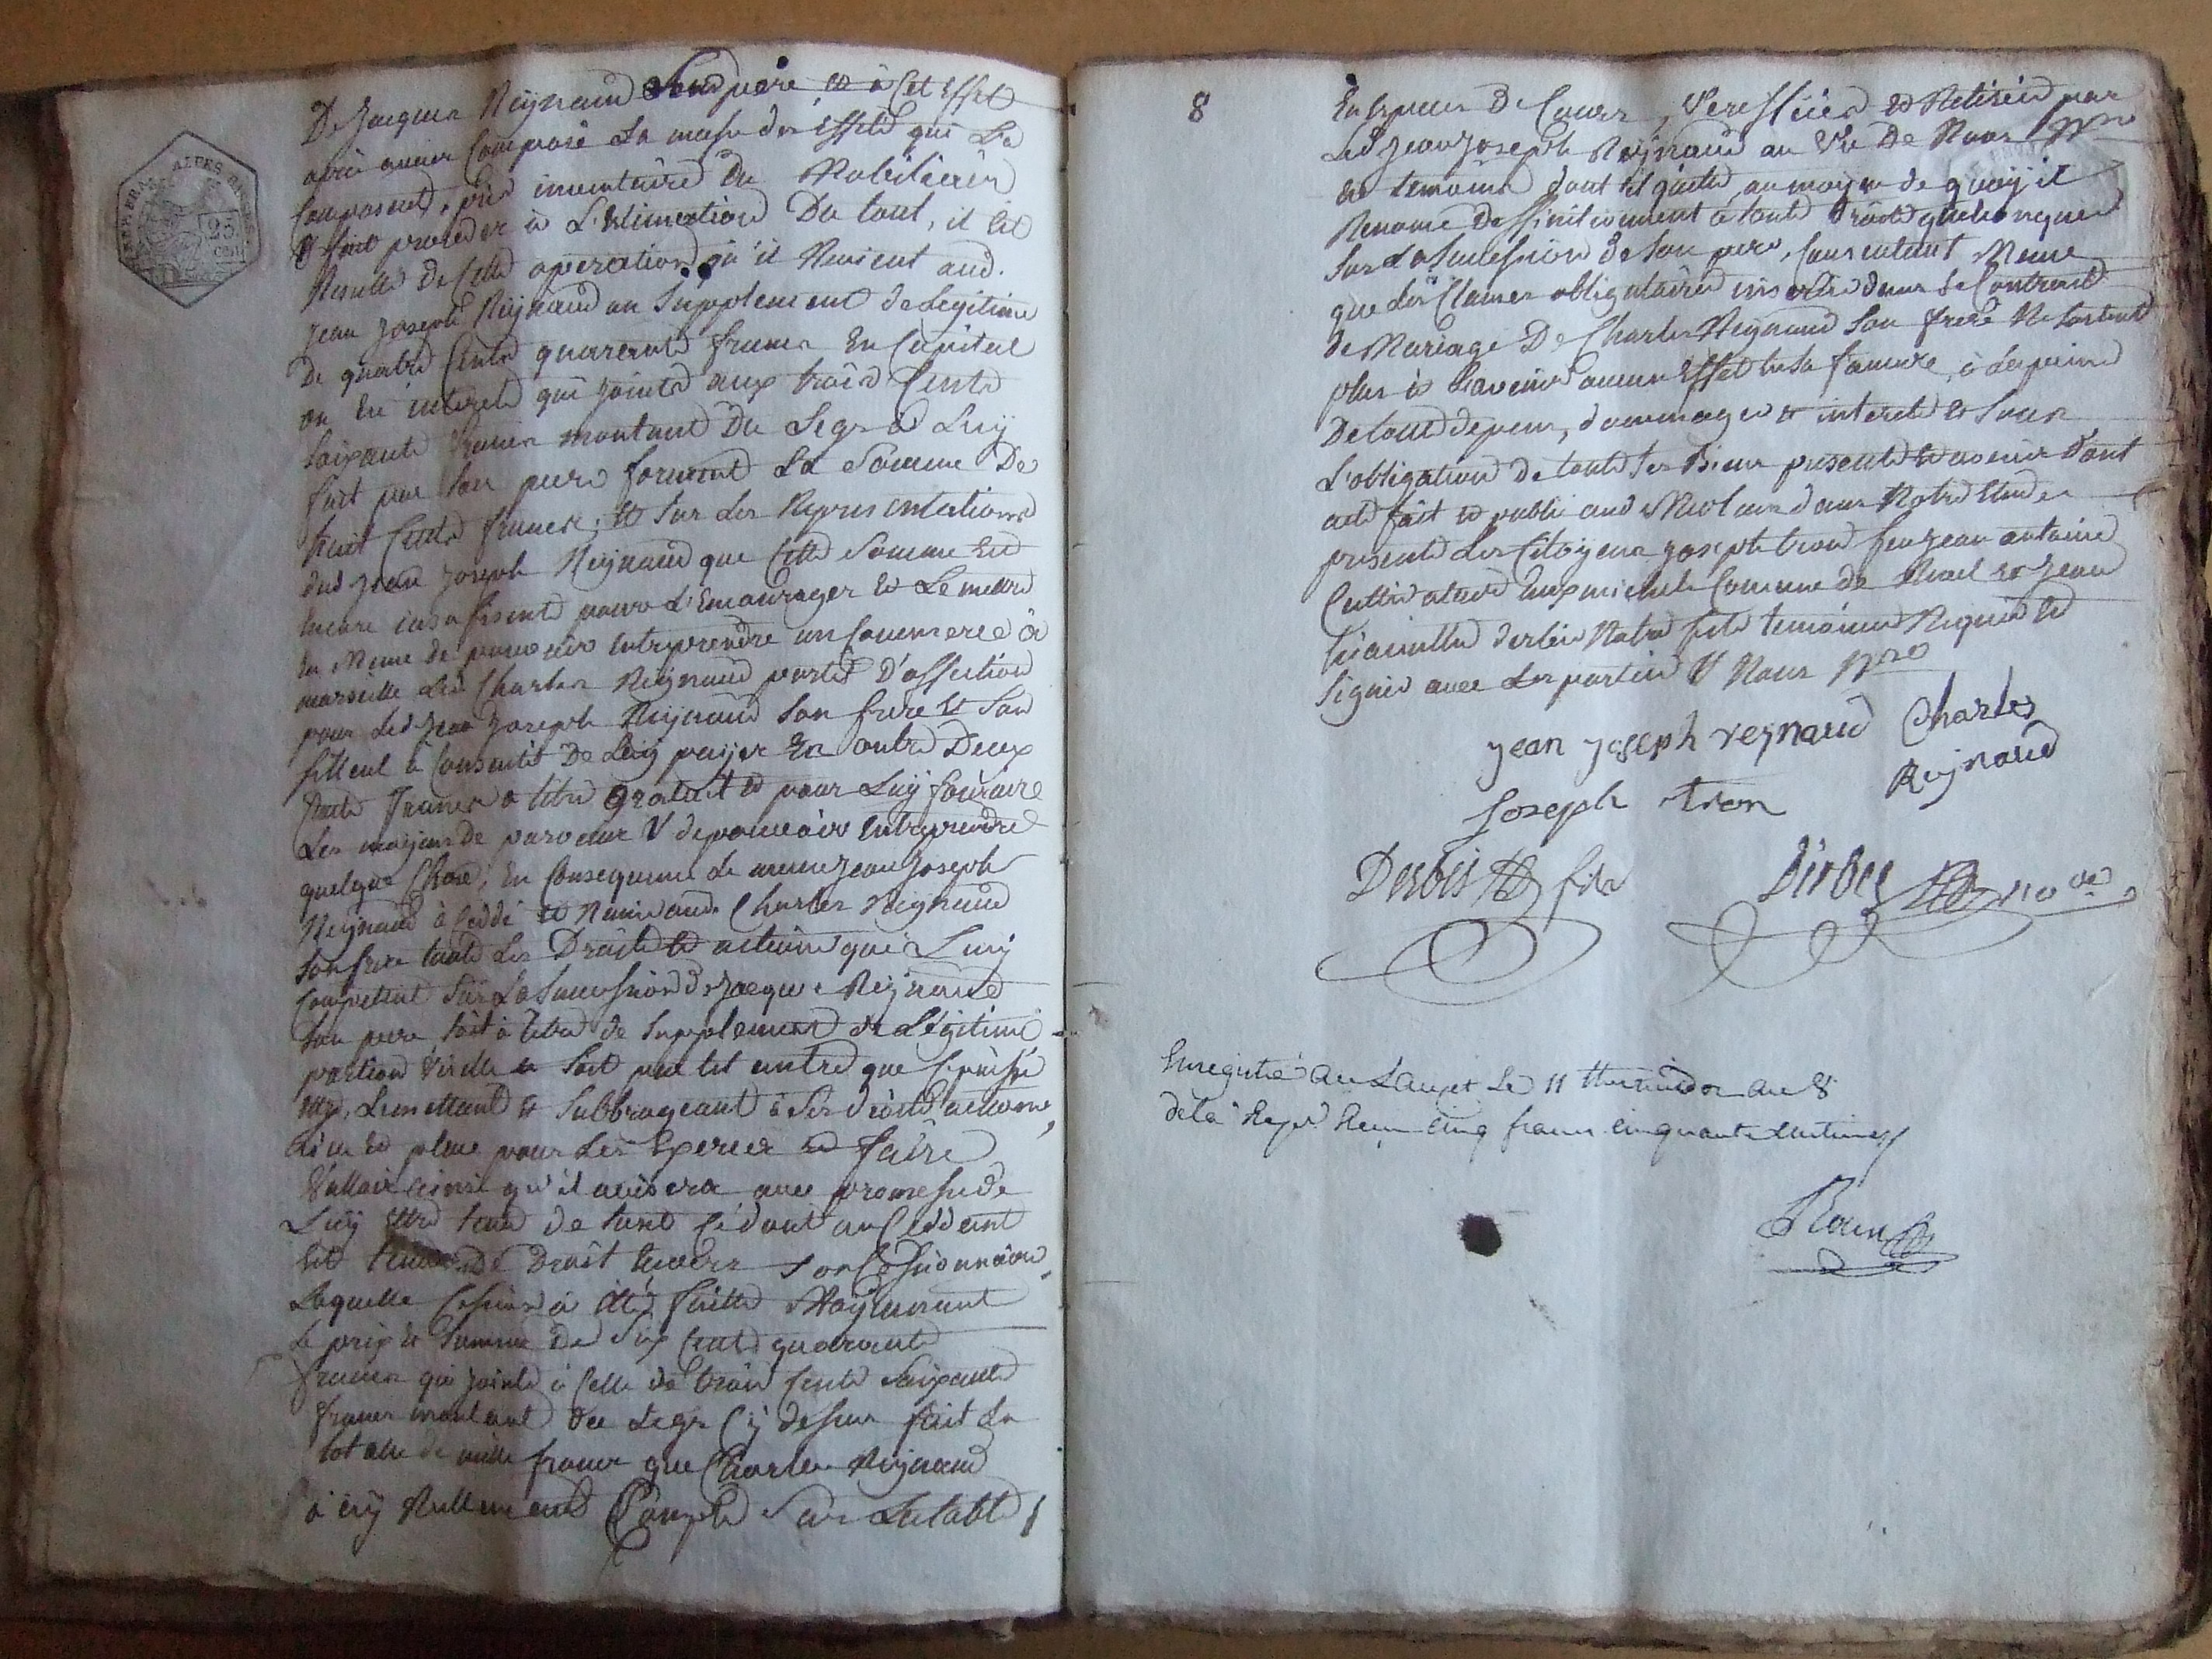 De Jacques Reynaud Leur père, et à Cet Effet
après avoir Composé La masse des Effets qui La
Composent, pris inventaire Du Mobiliaire
et fait proceder à L'Estimation Du tout, il Est
Resulté De Cette operation qu'il Revient aud.
Jean Joseph Reynaud un Supplement de Legitime
De quatre Cents quarante francs En Capital
ou En interets qui joints aux trois Cents
Soixante francs montant Du Legs à Luy
fait par Son pere forment La Somme De
huit Cents francs; Et Sur Les Representations
dud Jean Joseph Reynaud que Cette Somme Est
Encore insuffisente pour L'Encourager Et Le mettre
En Meme de pouvoir Entreprendre un Commerce à
marseille Led. Charles Reynaud porté D'affection
pour Led Jean Joseph Reynaud Son frere Et Son
filleul à Consenti De Luy payer En outre Deux
Cents francs à titre Gratuit Et pour Luy fournire
Les moyens de parvenir & de pouvoir Entreprendre
quelque Chose; En Consequence Le meme Jean Joseph
Reynaud à Ceddé Et Remis aud. Charles Reynaud
Son frere touts Les Droits Et actions que Luy
Competent Sur La Succession De Jacques Reynaud
Son pere Soit à titre de Supplement de Legitime
portion virille Et Soit par tel autre que Ce puisse
Etre, Le mettant Et Subbrogeant à Ses droits actions,
Lieu Et place pour Les Exercer Et faire
Valloir ainsi qu'il avisera avec promesse de
Luy Etre tenu de tout Ce dont un Ceddant
Est tenu De Droit Envers Son Cessionnaire,
Laquelle Cession à Eté faitte Moyenant
Le prix Et Somme De Six Cents quarante
francs qui jointe à Celle de trois Cents Soixante
francs montant du Legs Cy dessus fait La
totalle de mille francs que Charles Reynaud
à icy Rellement Compté Sur La table
25
cen
8
En Espèces De Cours, Veriffiées Et Retirées par
Led Jean Joseph Reynaud au Vu De Nous Nre
Et temoins dont il quitte, au moyen de quoy il
Renonce Deffinitivement à touts droits quelconques
Sur La Succession de Son pere, Consentant Meme
que Les Clauses obligatoires inserées dans Le Contract
de Mariage De Charles Reynaud Son frere Ne Sortent
plus à L'avenir aucun Effet En Sa faveur, à Lapeine
De touts depens, dommages Et interets Et Sous
L'obligation de touts Ses Biens presents Et avenir Dont
acte fait Et publié aud Meolans dans Notre Etude
presents Les Citoyens Joseph tron feu Jean antoine
Cultivateur Commune de Revel Et Jean
derbés Notre fils temoins Requis Et
Signés avec Les parties & Nous Nre
jean joseph reynaud Charles
Reynaud
Joseph tron
Derbés fils Dérbés nore
Enregistré au Lauzet Le 11 thermidor an 8
de la Rep. Reçu cinq francs cinquante centimes